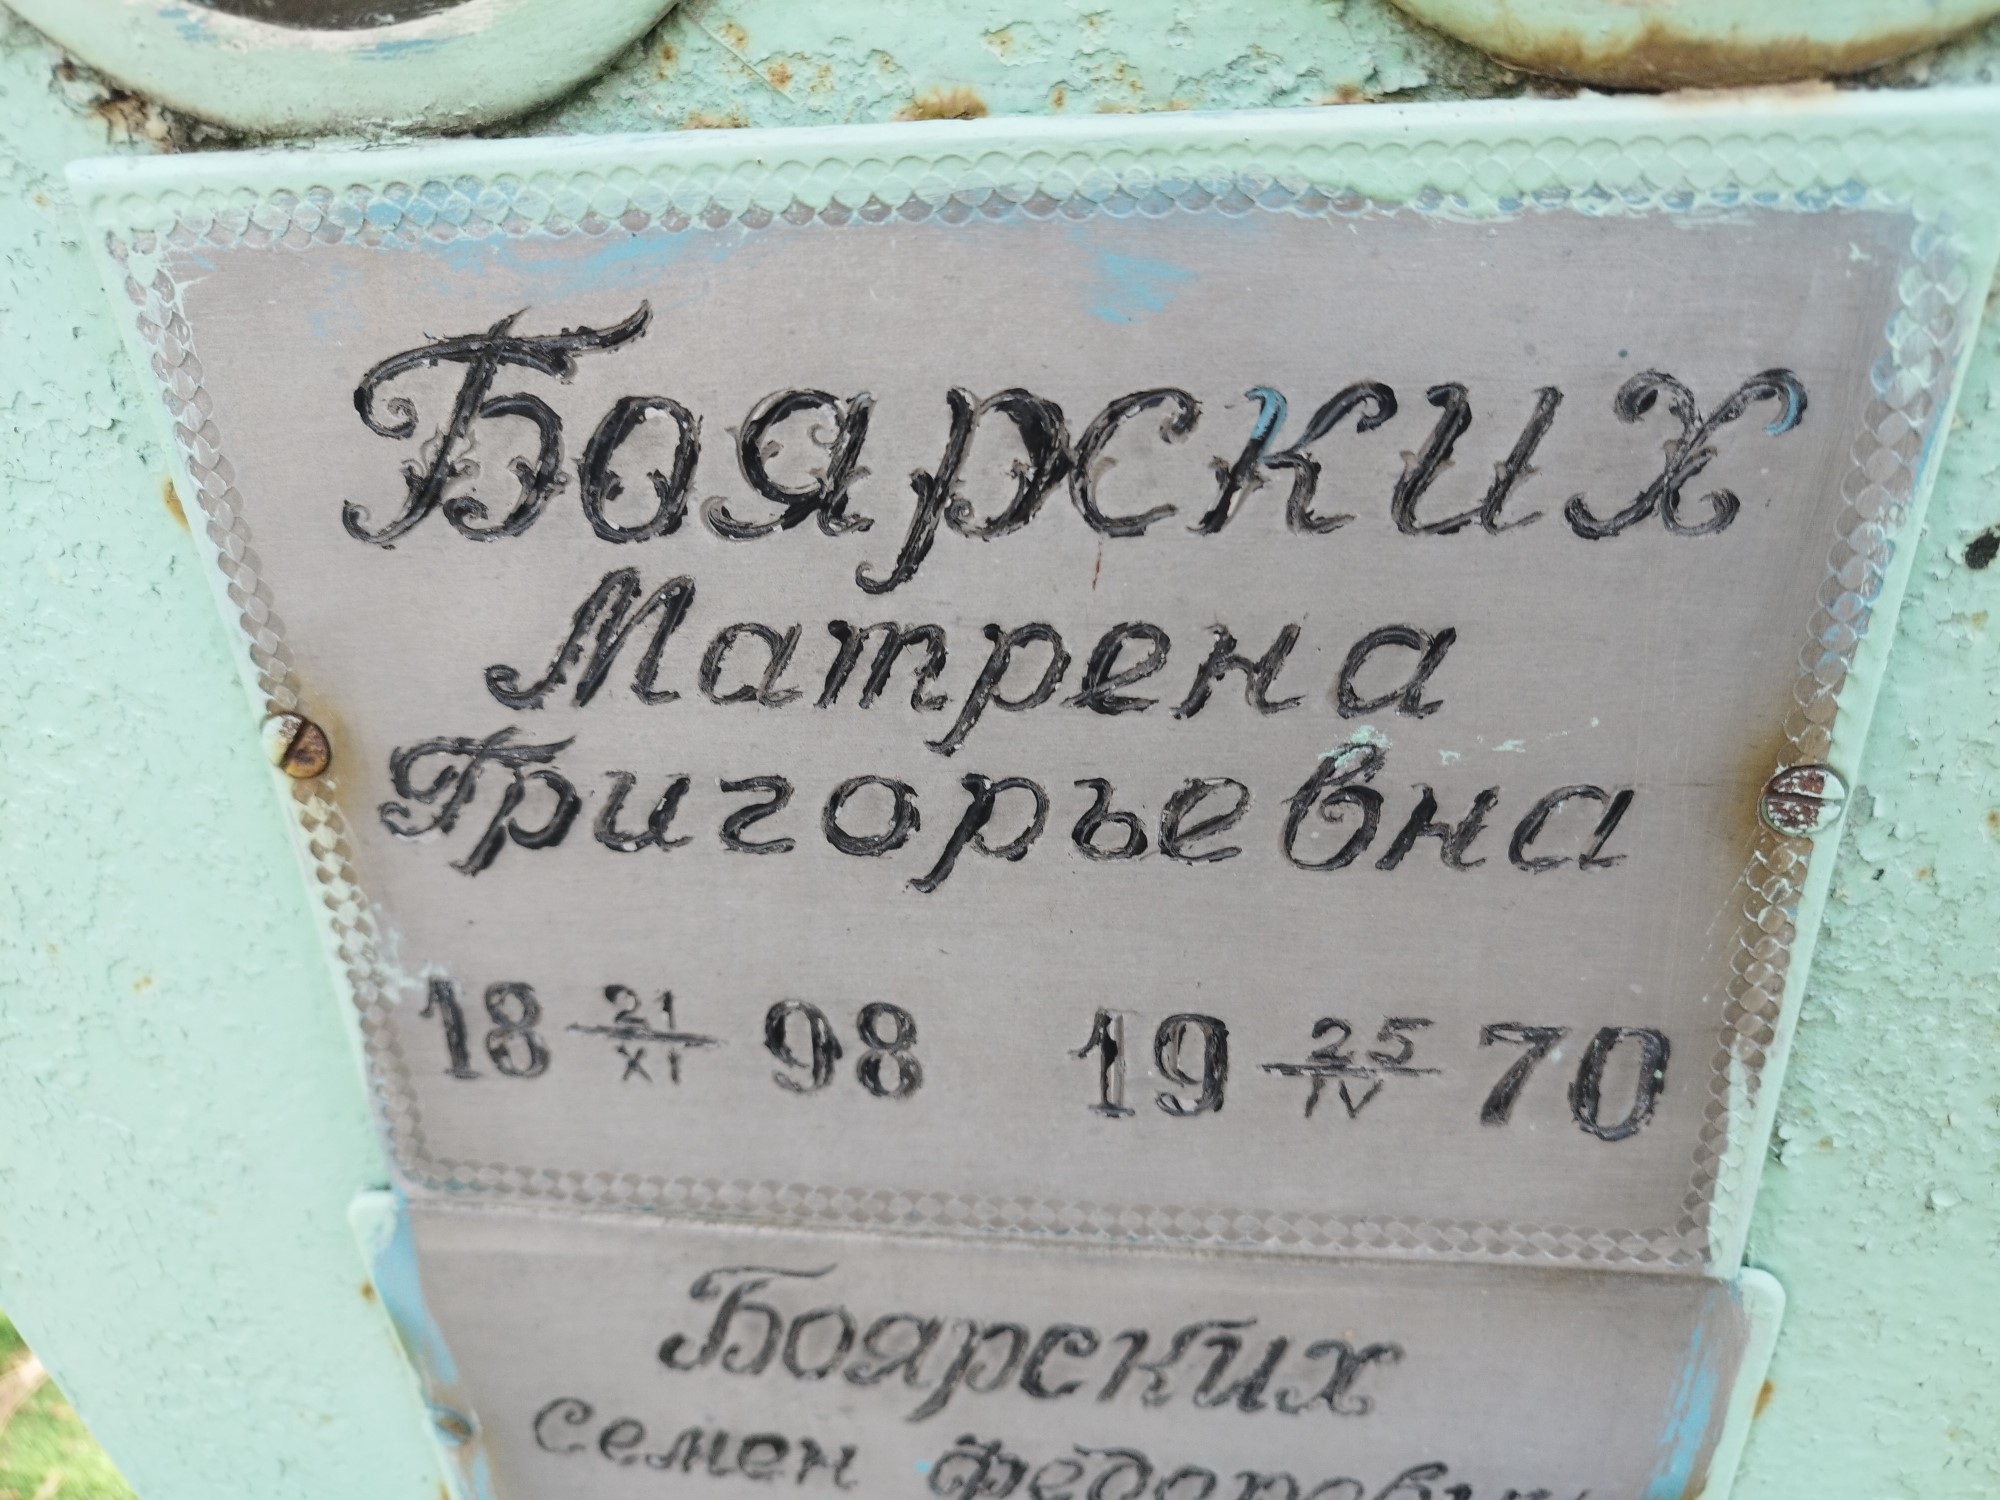 Боярских
Матрена
Григорьевна
18 21/XI 98 19 25/IV 70
Боярских
семен